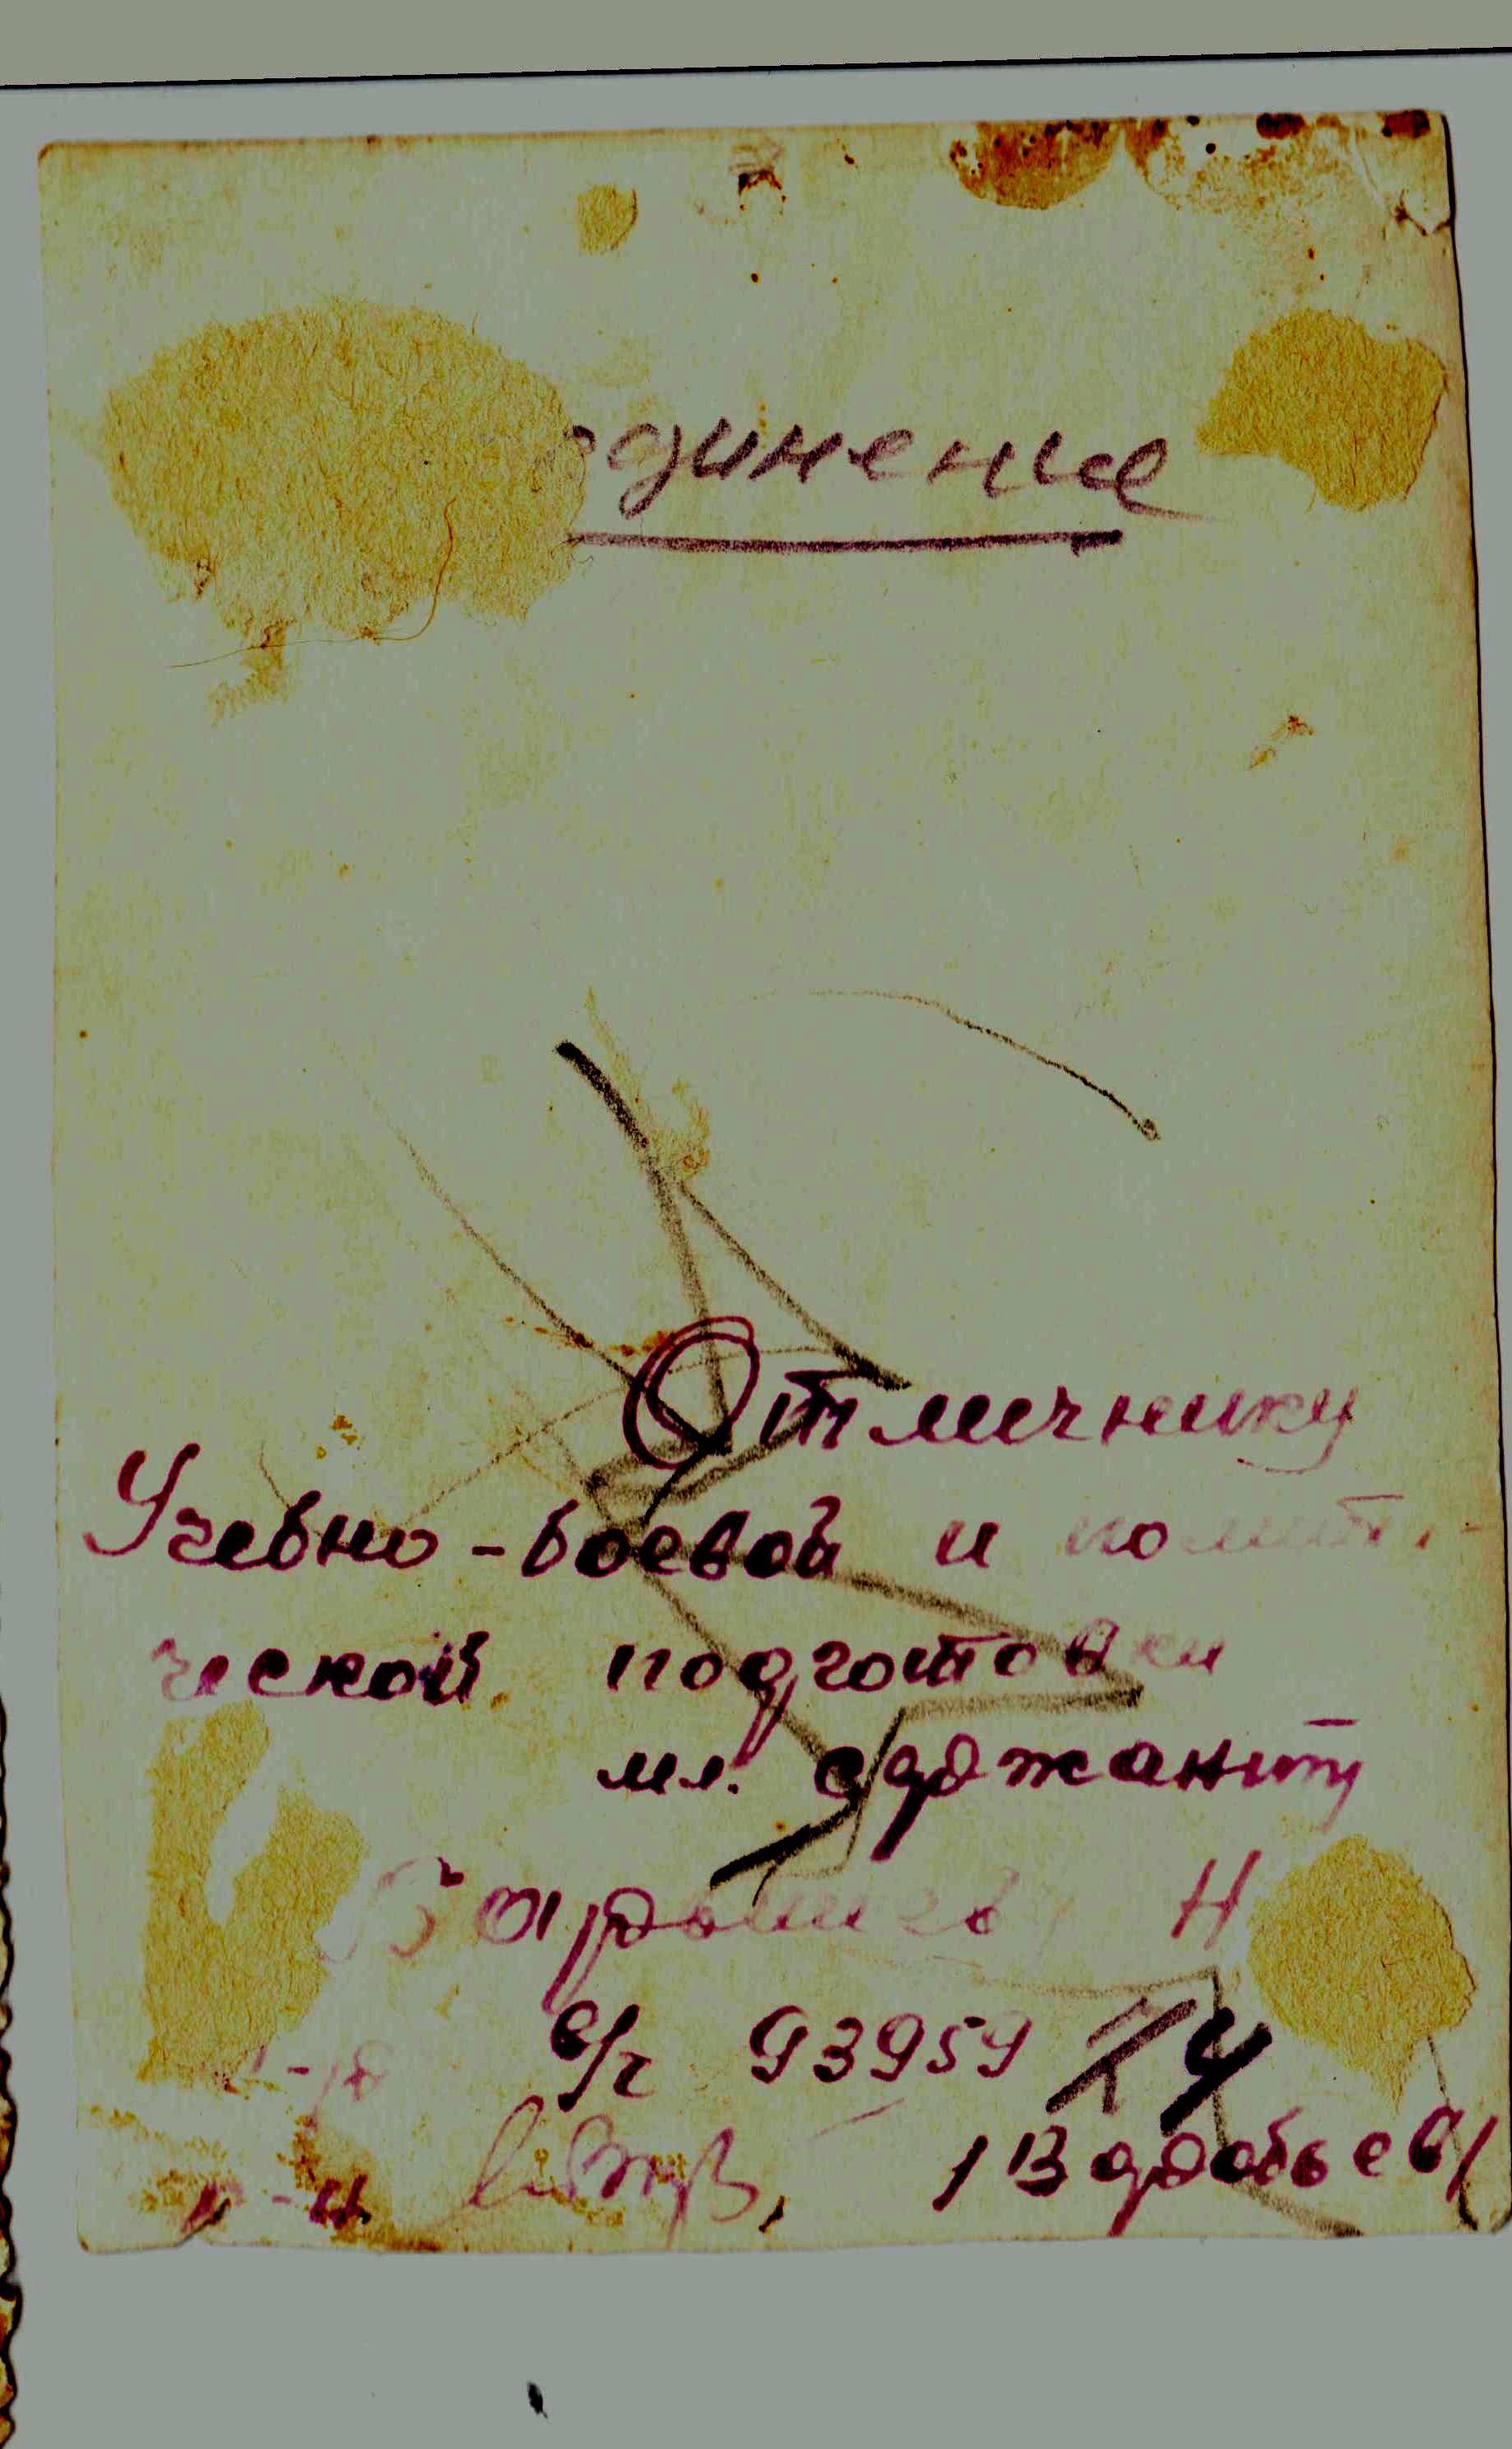 единение
Отличнику
Учебно-боевой и полити-
ческой подготовки
мл. сержанту
Н
в/ч 93959
/Воробьев/